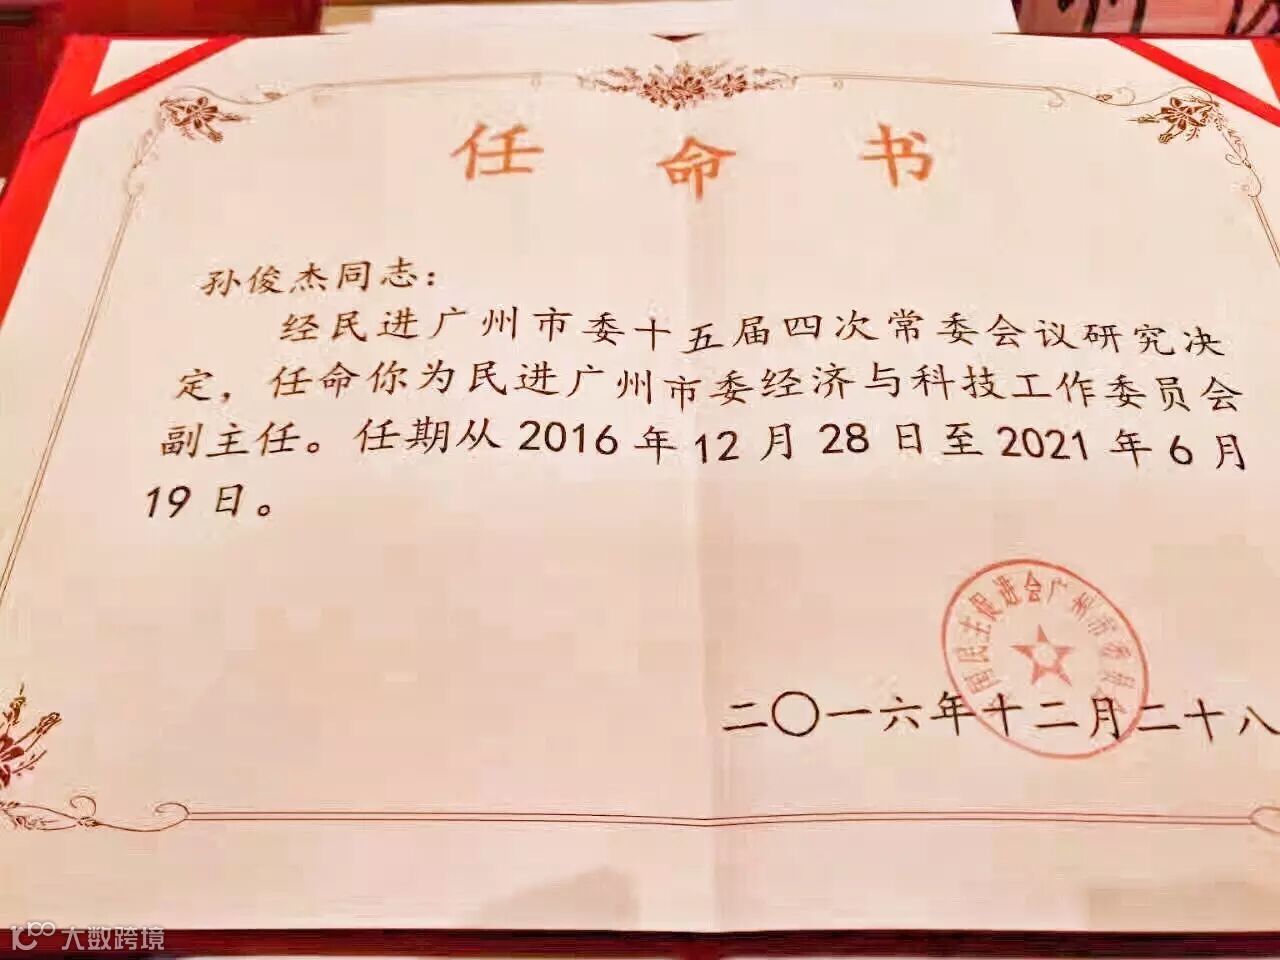 任命书
孙俊杰同志：
经民进广州市委十五届四次常委会议研究决
定，任命你为民进广州市委经济与科技工作委员会
副主任。任期从2016年12月28日至2021年6月
19日。
国民主促进会广州市委员
二〇一六年十二月二十八
大数跨境